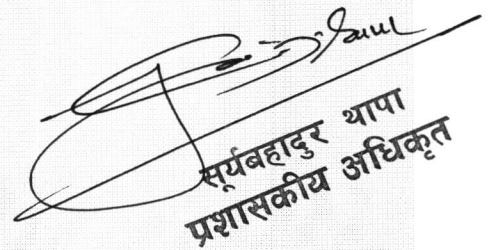 सूर्यबहादुर थापा
प्रशासकीय अधिकृत